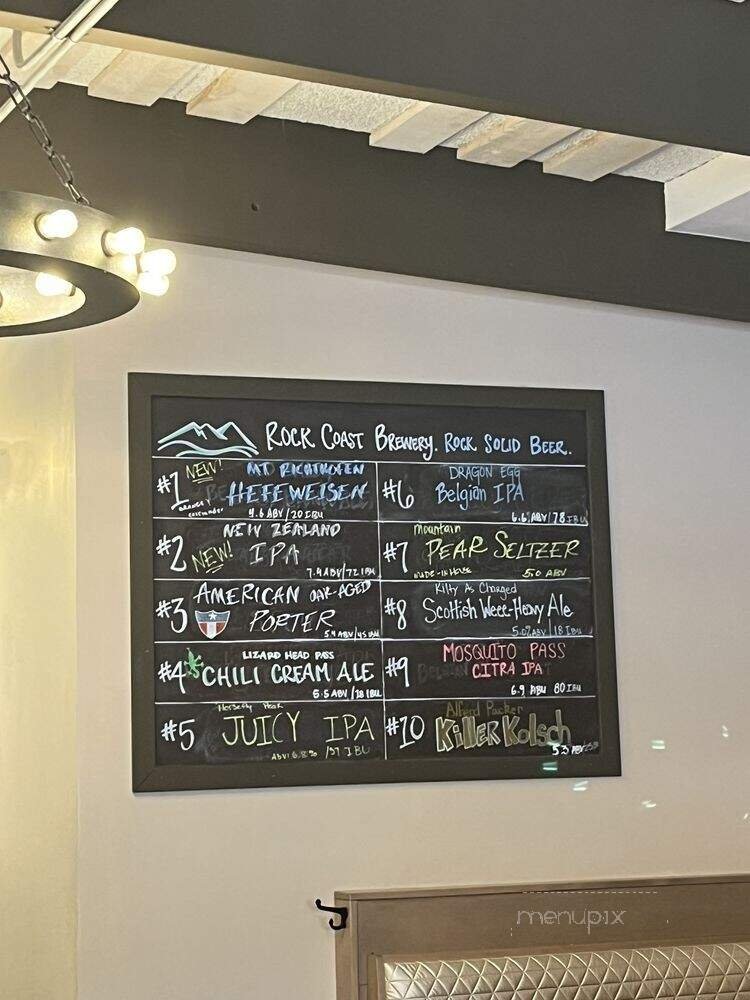 ROCK COAST BREWERY. ROCK SOLID BEER.
#1 NEW! MT RICHTHOFEN
HEFEWEISEN
ORANGE &
coriander
4.6 ABV/20 IBU
#2 NEW ZEALAND
NEW! IPA
7.4 ABV/72 IBU
#3 AMERICAN OAK-AGED
PORTER
5.4 ABV/45 IBU
#4 LIZARD HEAD PASS
CHILI CREAM ALE
5.5 ABV/18 IBU
#5
JUICY IPA
ABV: 6.8% /57 IBU
#6 DRAGON EGG
Belgian IPA
6.6 ABV/78 IBU
#7 mountain
PEAR SELTZER
MADE-IN-HOUSE 5.0 ABV
#8 Kilty As Charged
Scottish Weee-Heavy Ale
5.0% ABV/18 IBU
#9 MOSQUITO PASS
CITRA IPA
6.9 ABU 80 IBU
#10 Alferd Packer
KiLLER Kolsch
5.3 ABV
menupix